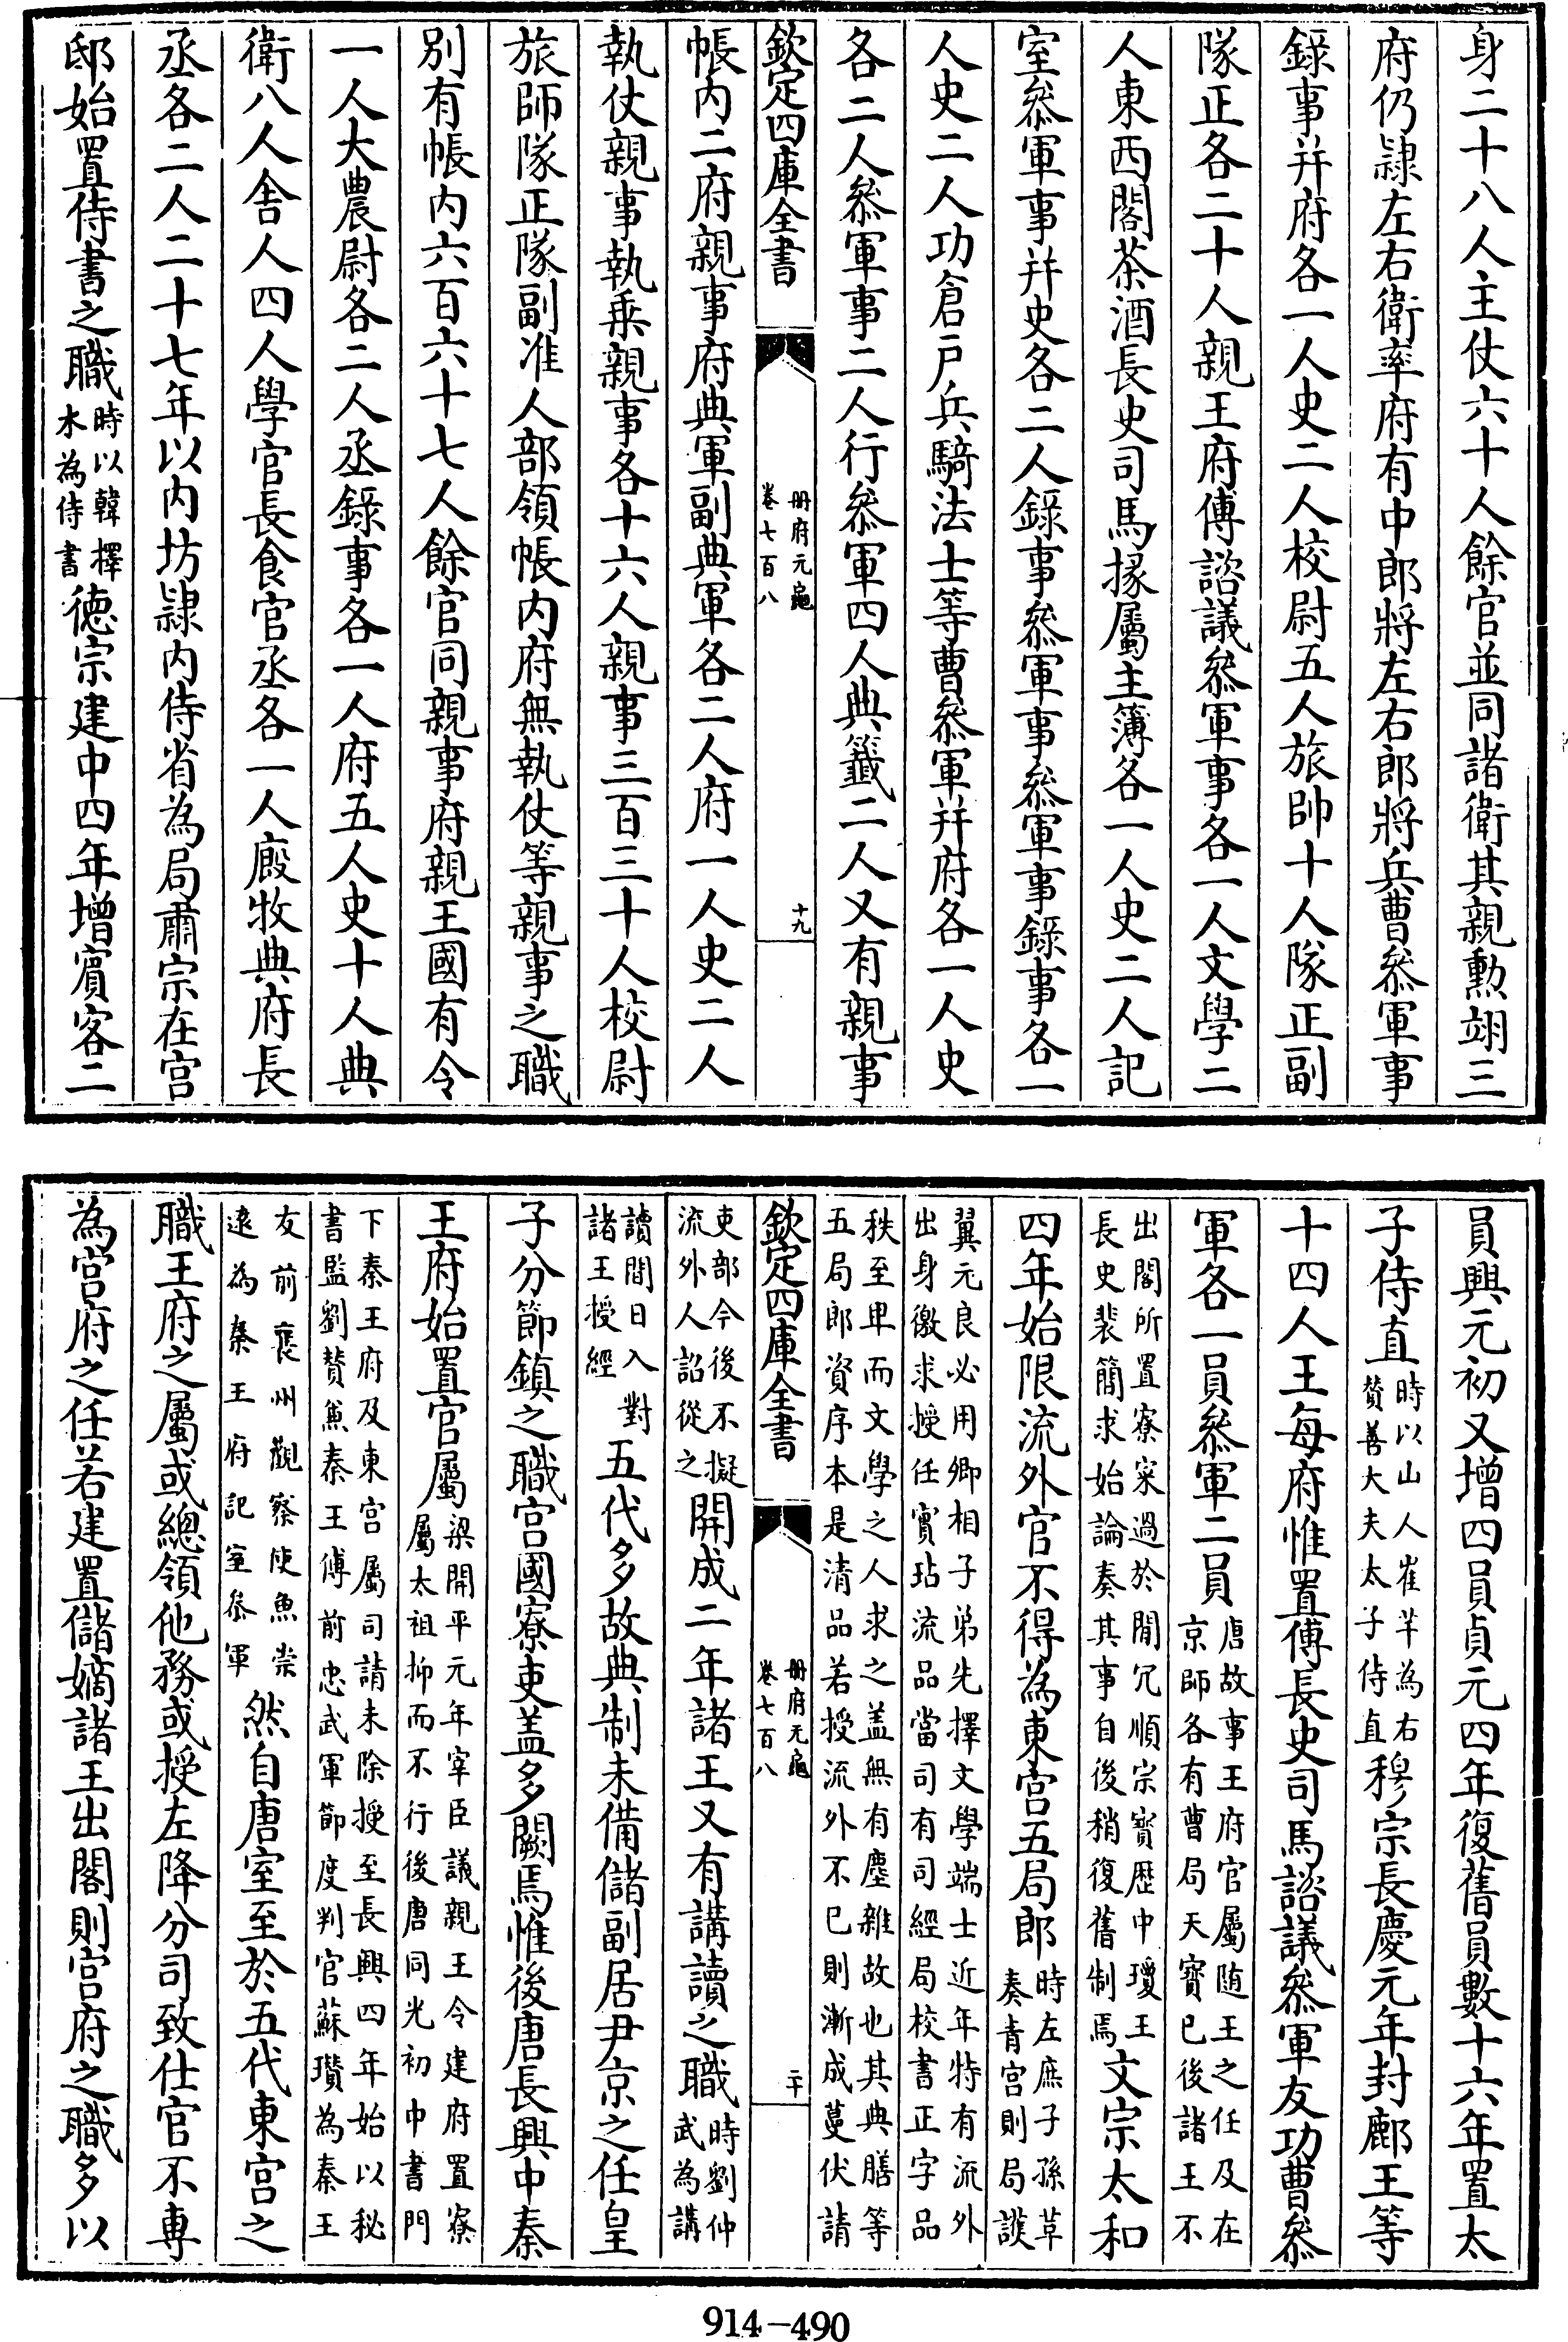 身二十八人主仗六十人餘官並同諸衛其親勲翊三
府仍𨽻左右衛率府有中郎將左右郎將兵曹叅軍事
録事并府各一人史二人校尉五人旅帥十人隊正副
隊正各二十人親王府傅諮議叅軍事各一人文學二
人東西閤祭酒長史司馬掾屬主簿各一人史二人記
室叅軍事并史各二人録事叅軍事叅軍事録事各一
人史二人功倉戸兵騎法士等曹叅軍并府各一人史
各二人叅軍事二人行叅軍四人典籖二人又有親事
欽定四庫全書
冊府元龜
卷七百八
十九
帳内二府親事府典軍副典軍各二人府一人史二人
執仗親事執乗親事各十六人親事三百三十人校尉
旅師隊正隊副准人部領帳内府無執仗等親事之職
別有帳内六百六十七人餘官同親事府親王國有令
一人大農尉各二人丞録事各一人府五人史十人典
衛八人舎人四人學官長食官丞各一人廄牧典府長
丞各二人二十七年以内坊𨽻内侍省為局肅宗在宫
邸始置侍書之職
時以韓擇
木為侍書
德宗建中四年增賔客二
員興元初又增四員貞元四年復舊員數十六年置太
子侍直
時以山人崔芊為右
賛善大夫太子侍直
穆宗長慶元年封鄜王等
十四人王每府惟置傅長史司馬諮議叅軍友功曹叅
軍各一員叅軍二員
唐故事王府官屬随王之任及在
京師各有曹局天寳已後諸王不
出閤所置寮寀過於閒冗順宗寳歴中瓊王
長史裴簡求始論奏其事自後稍復舊制焉
文宗太和
四年始限流外官不得為東宫五局郎
時左庶子孫革
奏青宫則局謨
翼元良必用卿相子弟先擇文學端士近年特有流外
出身徼求授任實玷流品當司有司經局校書正字品
秩至卑而文學之人求之盖無有塵雜故也其典膳等
五局郎資序本是清品若授流外不已則漸成蔓伏請
欽定四庫全書
冊府元龜
卷七百八
二十
吏部今後不擬
流外人詔從之
開成二年諸王又有講讀之職
時劉仲
武為講
讀間日入對
諸王授經
五代多故典制未備儲副居尹京之任皇
子分節鎮之職宫國寮吏盖多闕焉惟後唐長興中秦
王府始置官屬
梁開平元年宰臣議親王令建府置寮
屬太祖抑而不行後唐同光初中書門
下秦王府及東宫屬司請未除授至長興四年始以秘
書監劉賛兼秦王傅前忠武軍節度判官蘇瓚為秦王
友前襄州觀察使魚崇
逺為秦王府記室叅軍
然自唐室至於五代東宫之
職王府之屬或總領他務或授左降分司致仕官不專
為宫府之任若建置儲嫡諸王出閤則宫府之職多以
914-490